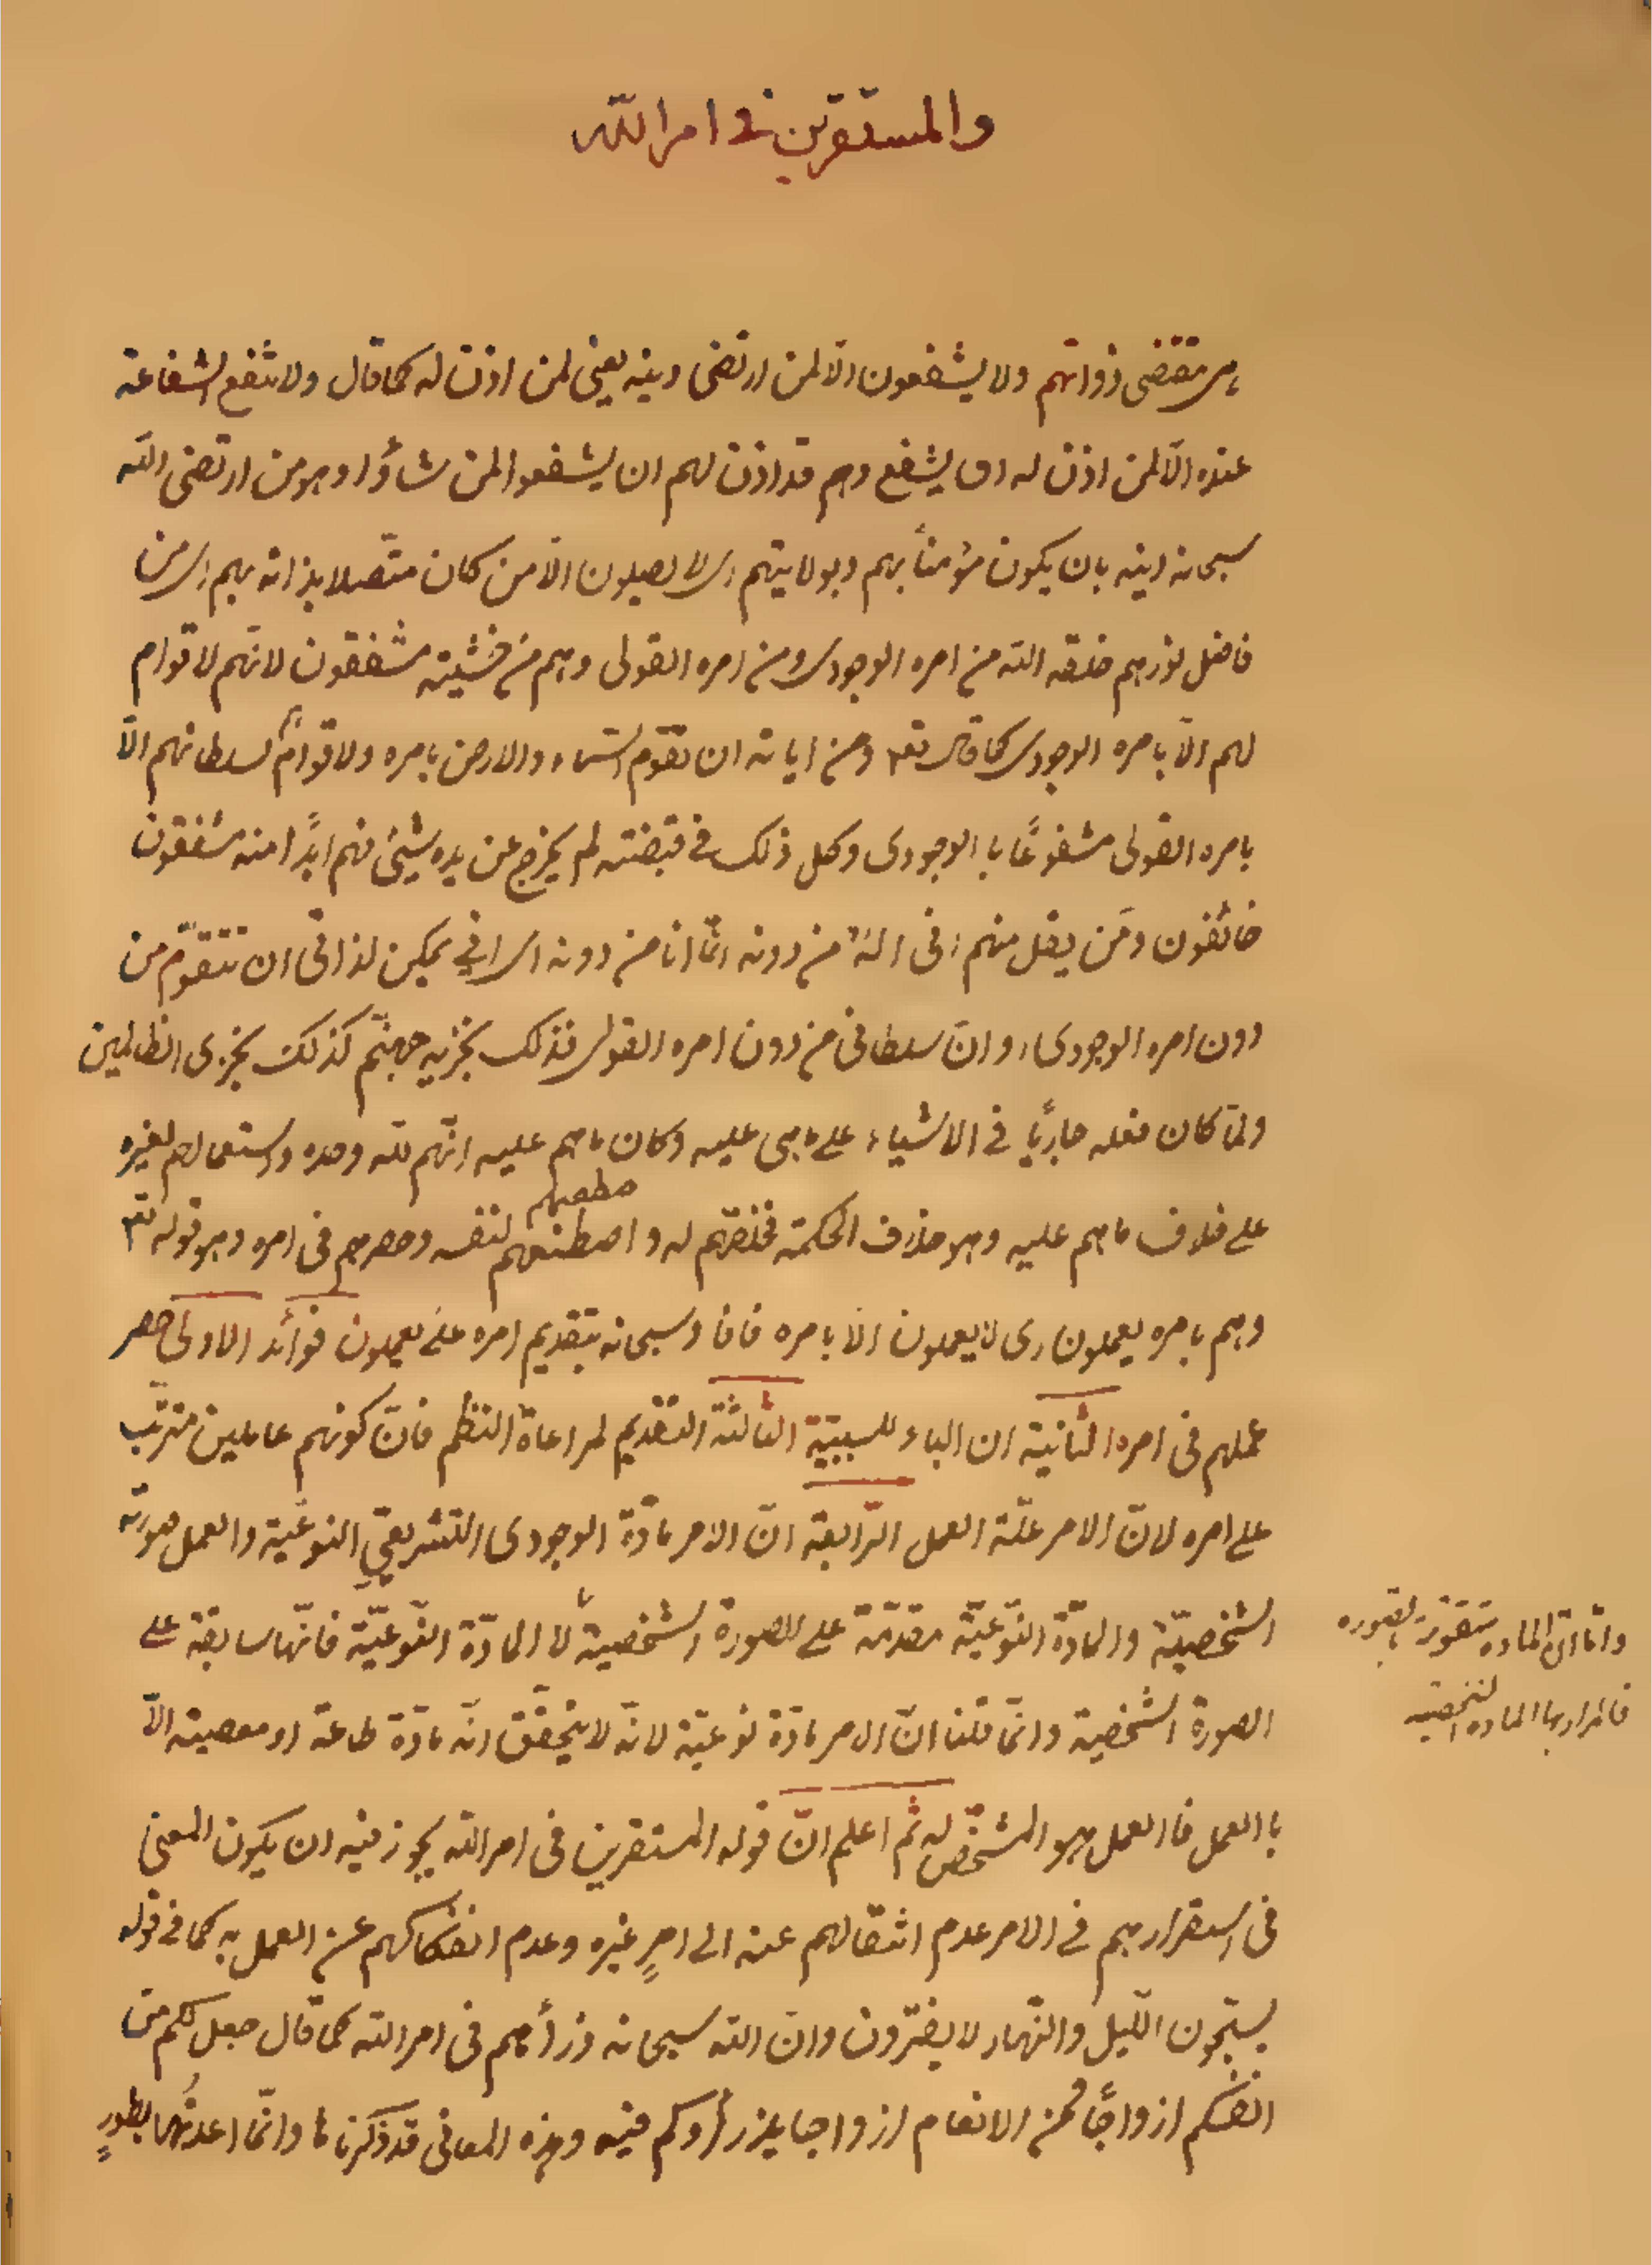 والمستقرين في امر الله
من مقتضى ذواتهم ولا يشفعون الّا لمن ارتضى دينه يعني لمن اذن له كما قال ولا تنفع الشفاعة
عنده الّا لمن اذن له ان يشفع وهم قد اذن لهم ان يشفعوا لمن شاؤا وهو من ارتضى الله
سبحانه دينه بان يكون مؤمناً بهم وبولايتهم اى لا يصلون الّا من كان متّصلا بذاته بهم اى من
فاضل نورهم خلقه الله من امره الوجودى ومن امره القولى وهم من خشيته مشفقون لانّهم لا قوام
لهم الّا بامره الوجودى كما قال تعه ومن اياته ان تقوم السّماء والارض بامره ولا قوامٌ لسلطانهم الّا
بامره القولى مشفوعًا با الوجودى وكل ذلك في قبضته لم يخرج عن يده شيئ فهم ابدًا منه مشفقون
خائفون ومَن يقل منهم انى اله من دونه انّما انا من دونه اى انى يمكن لذاتى ان تتقوّم من
دون امره الوجودى او انّ سلطانى من دون امره القولى فذلك نجزيه جهنّم كذلك نجزى الظالمين
ولمّا كان فعله جاريًا في الاشياء على ما هى عليه وكان ما هم عليه انّهم لله وحده واستعمالهم لغيره
على خلاف ما هم عليه وهو خلاف الحكمة فخلقهم له و اصطنعهم لنفسه وحصرهم فى امره وهو قوله تع
وهم بامره يعملون اى لا يعملون الّا بامره فافا د سبحانه بتقديم امره على يعملون فوائد الاولى حصر
عملهم فى امره الثانية ان الباء للسببيّة الثالثة التقديم لمراعاة النظم فانّ كونهم عاملين مترتّب
على امره لانّ الامر علّة العمل الرّابعة انّ الامر مادّة الوجودى التشريعيّ النوعيّة والعمل صورته
الشخصيّة والمادّة النّوعيّة مقدّمة على الصورة الشخصية لا المادّة النّوعيّة فانّها سابقة على
الصورة الشخصية وانّما قلنا انّ الامر مادّة نوعيّة لانّه لا يتحقّق انّه مادّة طاعة او معصية الّا
با العمل فا العمل هو المشخّص له ثم اعلم انّ قوله المستقرين فى امر الله يجوز فيه ان يكون المعنى
فى استقرارهم في الامر عدم انتقالهم عنه الى امرٍ غيره وعدم انفكاكهم عن العمل به كما في قوله
يسبّحون اللّيل والنّهار لا يفترون وانّ الله سبحانه ذرأهم فى امر الله كما قال جعل لكم من
انفسكم ازواجًا ومن الانعام ازواجا يذرأوكم فيه وهذه المعانى قد ذكرناها وانّما اعدتُها بطورٍ
وامّا انّ الماده متقوّمة بالصوره
فالمراد بها المادة الشخصية